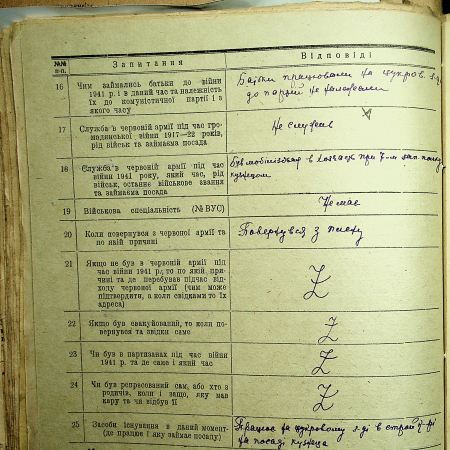 №№ п-п. Запитання Відповіді
16 Чим займались батьки до війни
1941 р. і в даний час та належність
їх до комуністичної партії і в
якого часу
Батьки працювали на цукров. з-ді
до партії не належали
17 Служба в червоній армії під час гро-
мадянської війни 1917—22 років,
рід військ та займаєма посада
Не служив
18 Служба в червоній армії під час
війни 1941 року, який час, рід
військ, останнє військове звання
та займаєма посада
Був мобілізован в при 7-м зап. полку
кузнецом
19 Військова спеціальність (№ ВУС)
Немає
20 Коли повернувся з червоної армії та
по якій причині
Повернувся з
21 Якщо не був в червоній армії під
час війни 1941 р., то по якій, при-
чині та де перебував підчас від-
ходу червоної армії (чим може
підтвердити, а коли свідками то їх
адреса)
Z
22 Якщо був евакуйований, то коли по-
вернувся та звідки саме
Z
23 Чи був в партизанах під час війни
1941 р. та де саме і який час
Z
24 Чи був репресований сам, або хто з
родичів, коли і защо, яку мав
кару та чи відбув її
Z
25 Засоби існування в даний момент-
(де працює і яку займає посаду)
Працює на цукровому з-ді в
на посаді кузнеца